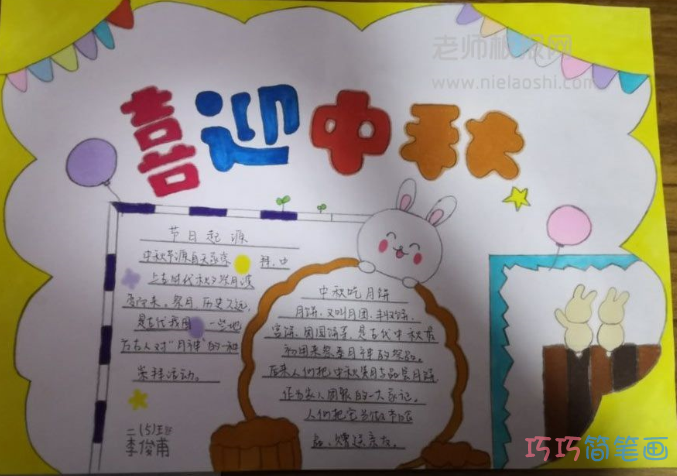 老师板报网
www.nielaoshi.com
喜迎中秋
节日起源
中秋节源自天象崇拜，由
上古时代秋夕祭月演
变而来。祭月，历史久远，
是古代我国一些地
方古人对“月神”的一种
崇拜活动。
二（5）班
李俊甫
中秋吃月饼
月饼，又叫月团、丰收饼、
宫饼、团圆饼等，是古代中秋
祭月神的祭品。
后来人们把中秋赏月与品尝月饼
作为家人团聚的一大象征。
人们把它当做节日
品，赠送亲友。
巧巧简笔画